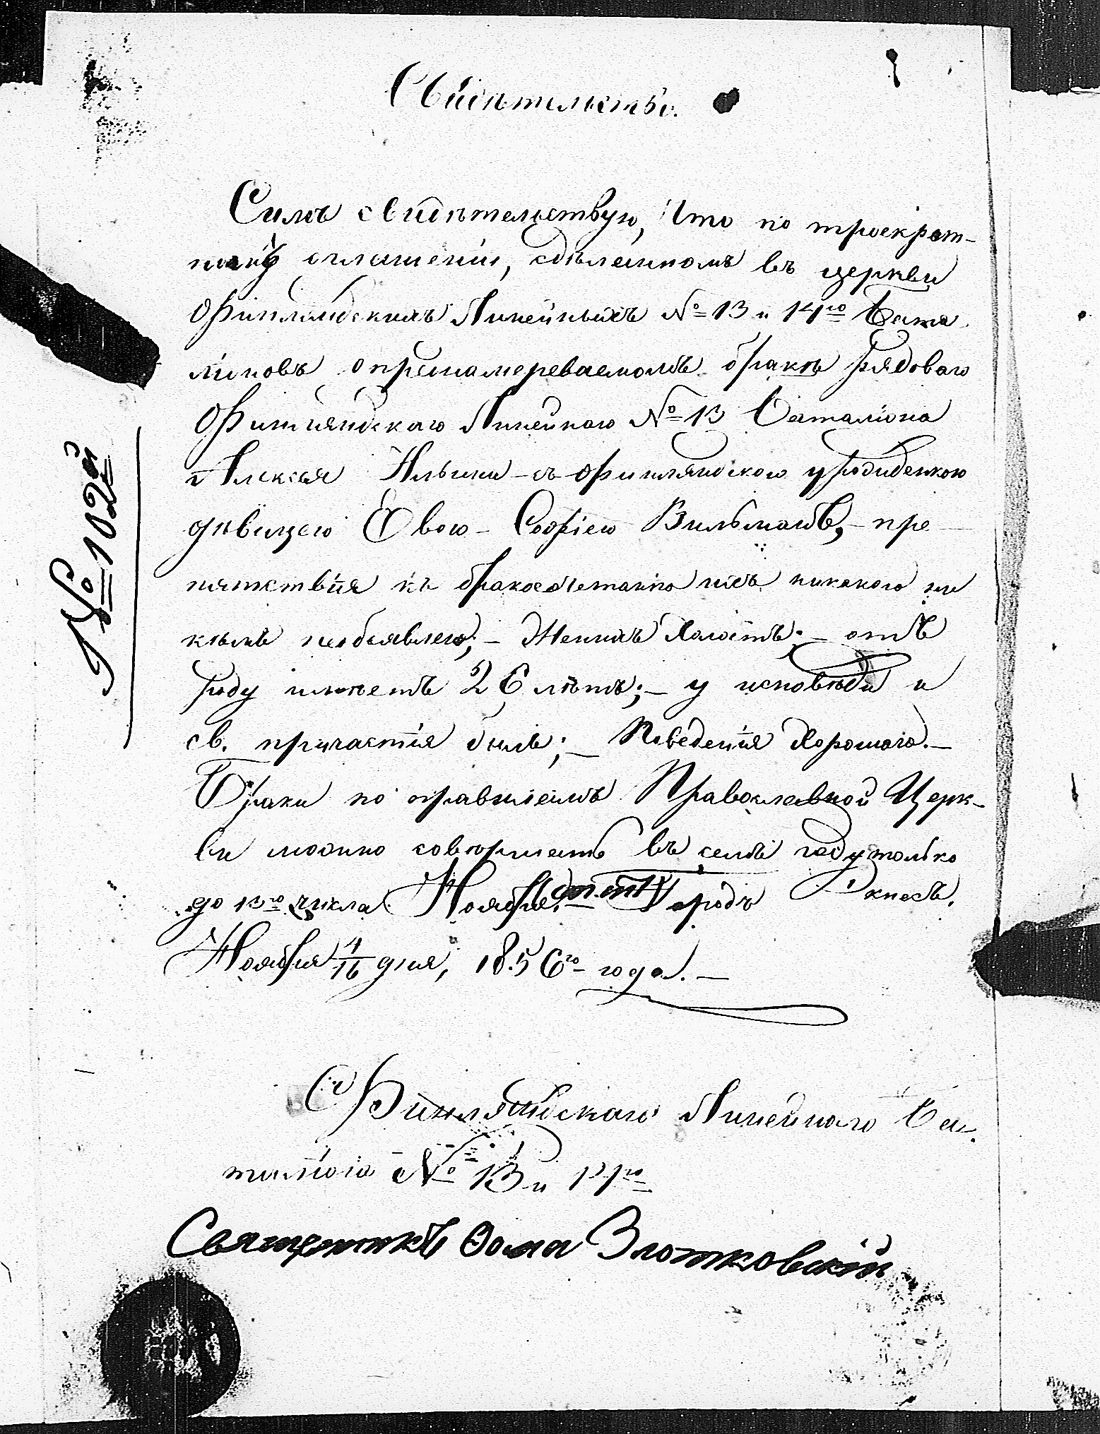 Свидѣтельство.
Симъ свидѣтельствую, что по троекрат-
ному оглашеніи, сдѣланномъ въ церкви
Финляндскихъ Линейныхъ №13 и 14го Бата
ліоновъ о предполагаемомъ бракѣ рядоваго
Финляндскаго Линейнаго №13 Баталіона
Алексея с Финляндскою уродиденкою
дѣвицею Евою - Софіею Вильманъ, - пре
пятствія къ бракосочетанію ихъ никакого ни
кѣмъ необъявлено; - Женихъ Холостъ; - отъ
роду имѣетъ 26 лѣтъ; - у исповѣди и
св. причастія былъ; - Поведенія Хорошаго. -
Браки по правиламъ Православной Церк-
ви можно совершать въ семъ году только
до 13го числа Ноября. Городъ
Ноября 4/16 дня, 1856го года. -
№ 102й
Финляндскаго Линейнаго Ба-
таліона №13 и 14го
Священникъ Ѳома Злотковскій